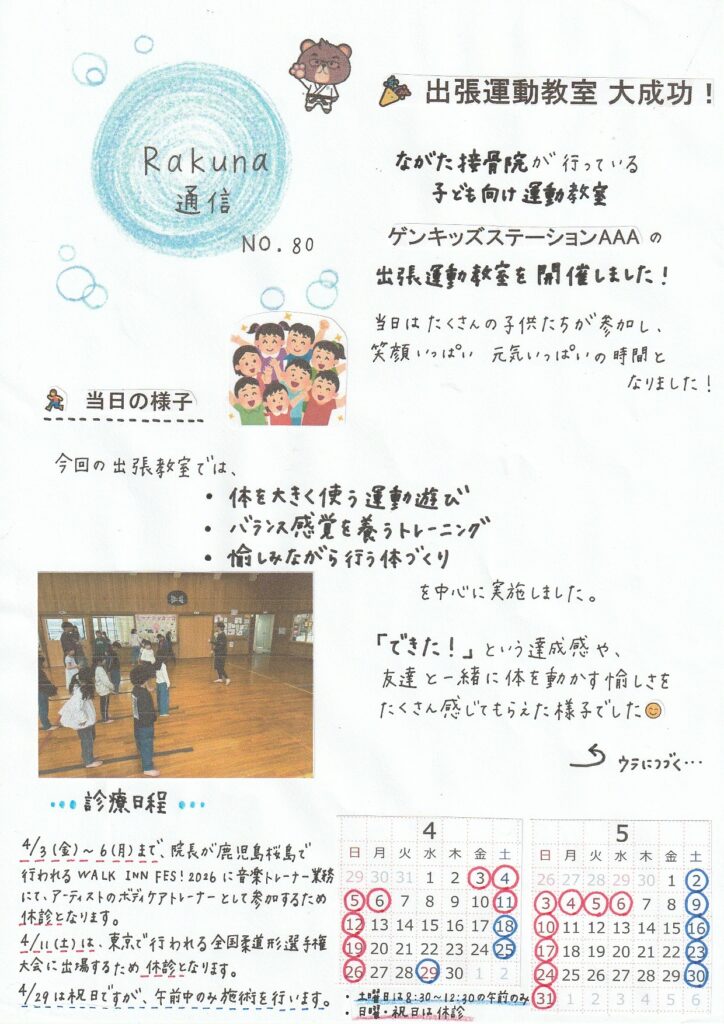 Rakuna
通信
NO.80
出張運動教室 大成功！
ながた接骨院が行っている
子ども向け運動教室
ゲンキッズステーションAAAの
出張運動教室を開催しました！
当日はたくさんの子供たちが参加し、
笑顔いっぱい 元気いっぱいの時間と
なりました！
当日の様子
今回の出張教室では、
・体を大きく使う運動遊び
・バランス感覚を養うトレーニング
・愉しみながら行う体づくり
を中心に実施しました。
「できた！」という達成感や、
友達と一緒に体を動かす愉しさを
たくさん感じてもらえた様子でした
ウラにつづく…
診療日程
4/3(金)～6(月)まで、院長が鹿児島桜島で
行われるWALK INN FES!2026に音楽トレーナー業務
にて、アーティストのボディケアトレーナーとして参加するため
休診となります。
4/11(土)は、東京で行われる全国柔道形選手権
大会に出場するため休診となります。
4/29は祝日ですが、午前中のみ施術を行います。
4
日 月 火 水 木 金 土
29 30 31 1 2 3 4
5 6 7 8 9 10 11
12 13 14 15 16 17 18
19 20 21 22 23 24 25
26 27 28 29 30 1 2
5
日 月 火 水 木 金 土
26 27 28 29 30 1 2
3 4 5 6 7 8 9
10 11 12 13 14 15 16
17 18 19 20 21 22 23
24 25 26 27 28 29 30
31 1 2 3 4 5 6
・土曜日は8:30～12:30の午前のみ
・日曜・祝日は休診